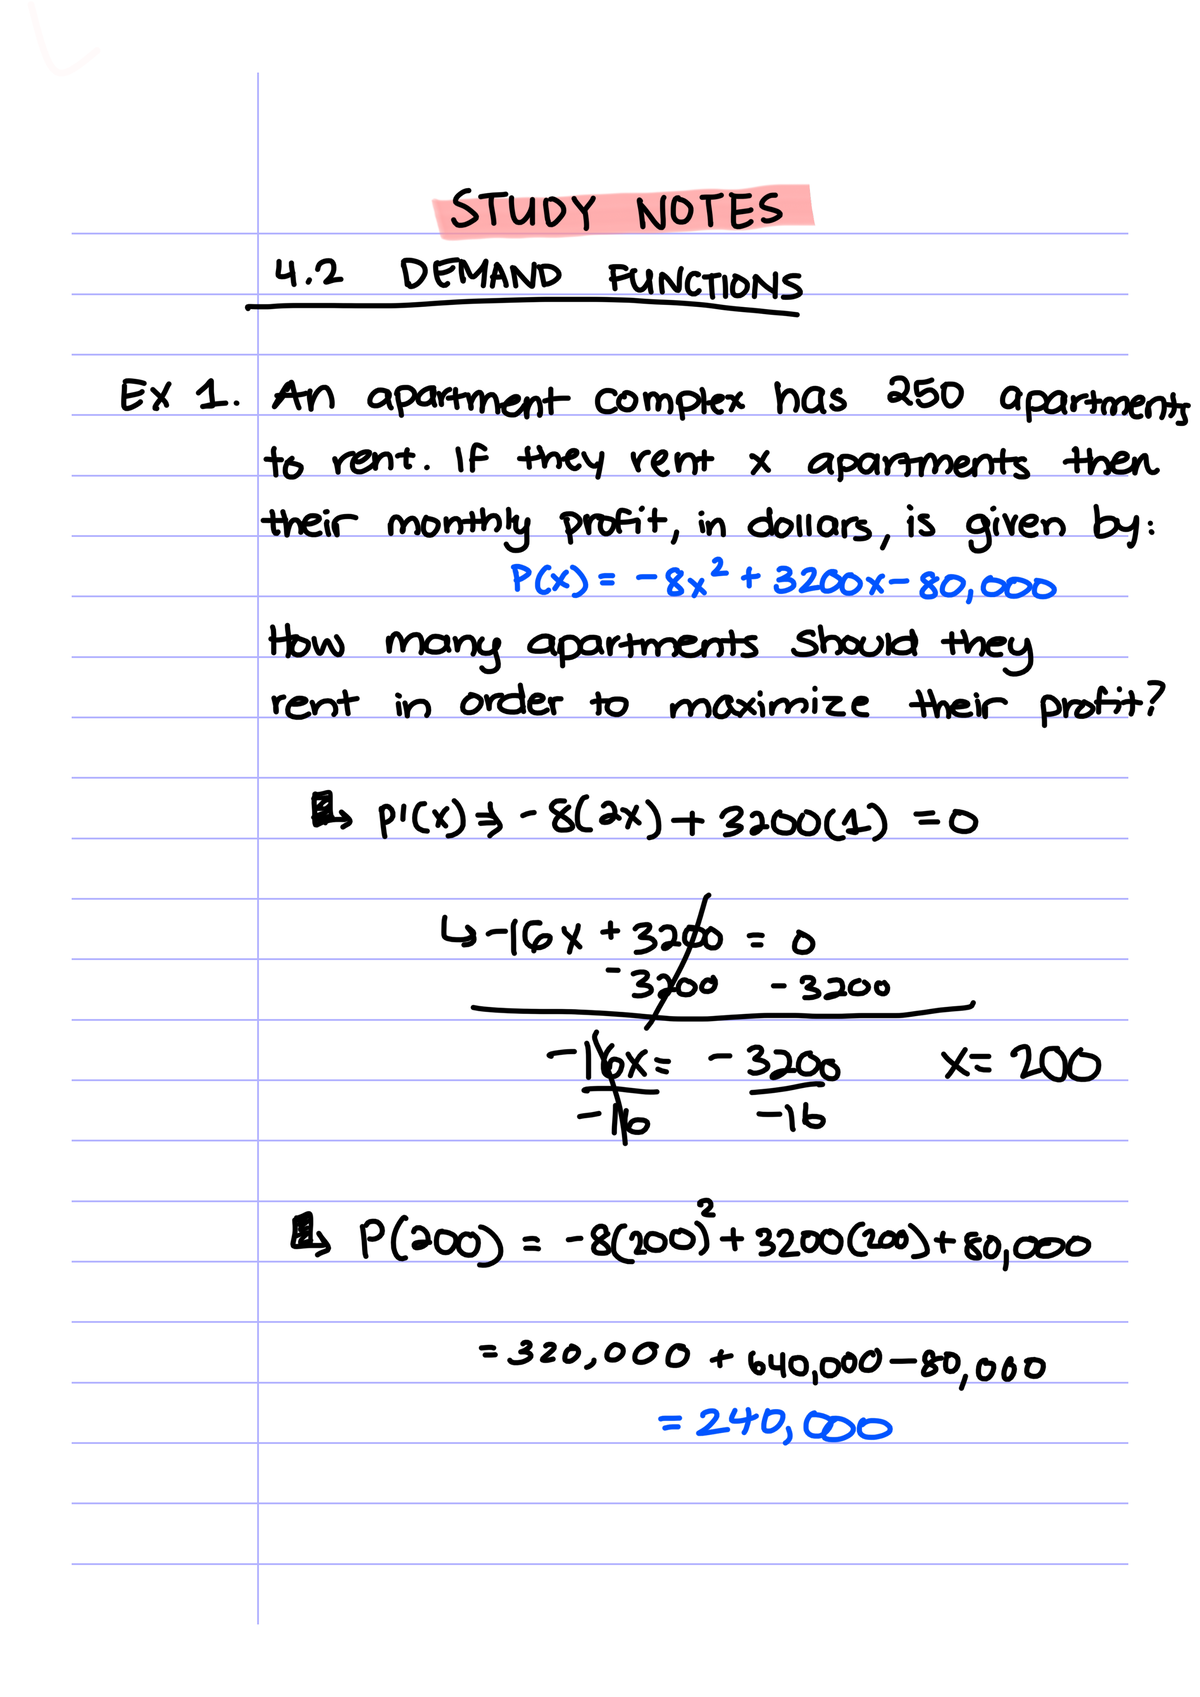 STUDY NOTES
4.2 DEMAND FUNCTIONS
Ex 1. An apartment complex has 250 apartments
to rent. If they rent x apartments then
their monthly profit, in dollars, is given by:
P(x) = -8x² + 3200x - 80,000
How many apartments should they
rent in order to maximize their profit?
↳ P'(x) ⇒ -8(2x) + 3200(1) = 0
↳ -16x + 3200 = 0
-3200 -3200
-16x = -3200 x = 200
-16 -16
↳ P(200) = -8(200)² + 3200(200) + 80,000
= 320,000 + 640,000 - 80,000
= 240,000